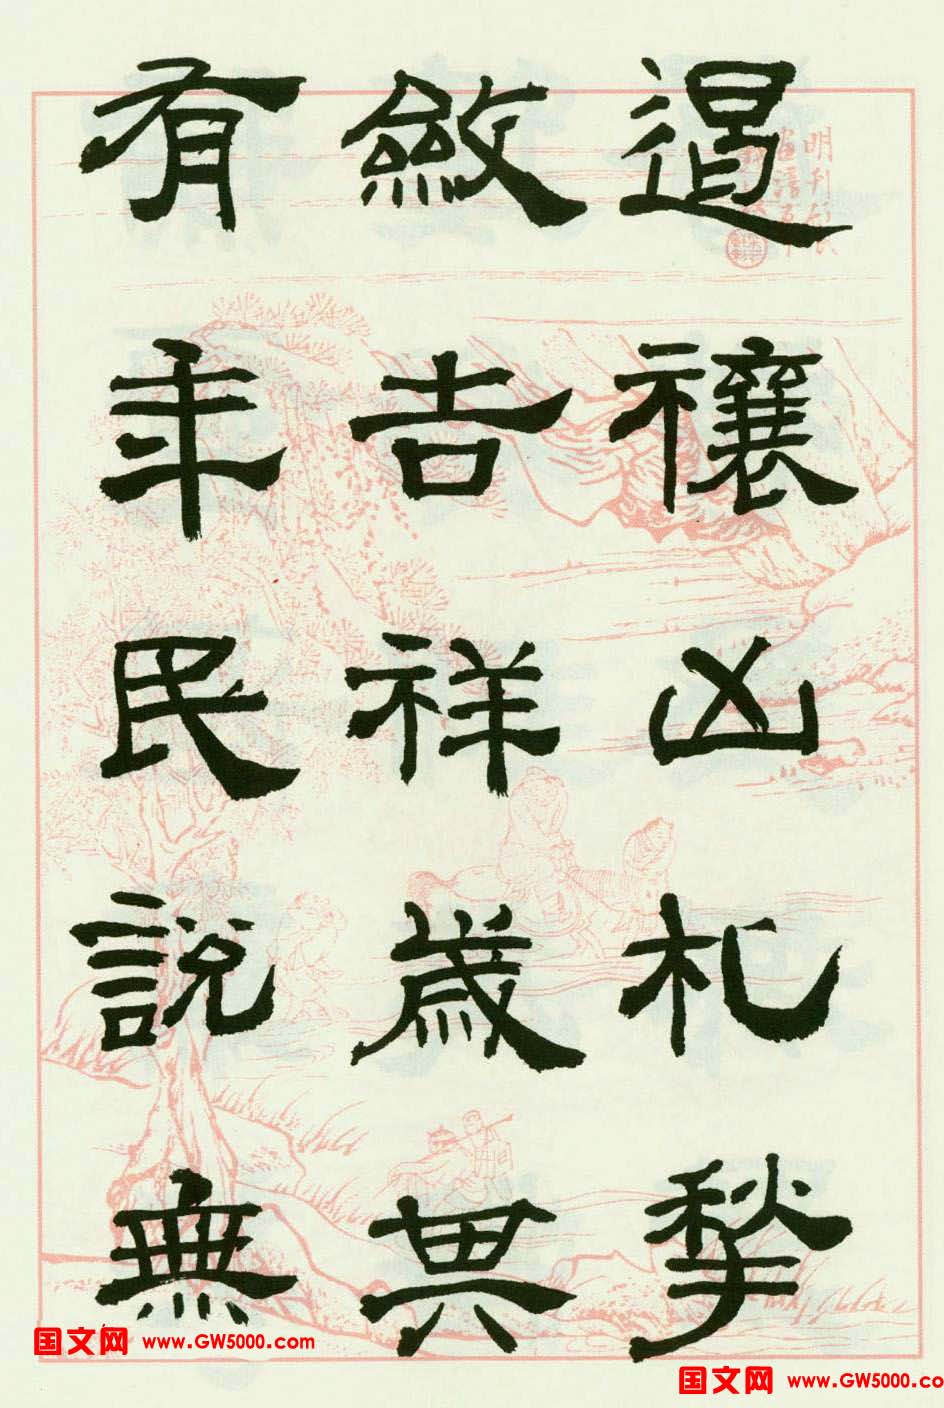 遏禳凶札揫
斂吉祥歲其
有年民說無
国文网 www.GW5000.com
国文网 www.GW5000.co